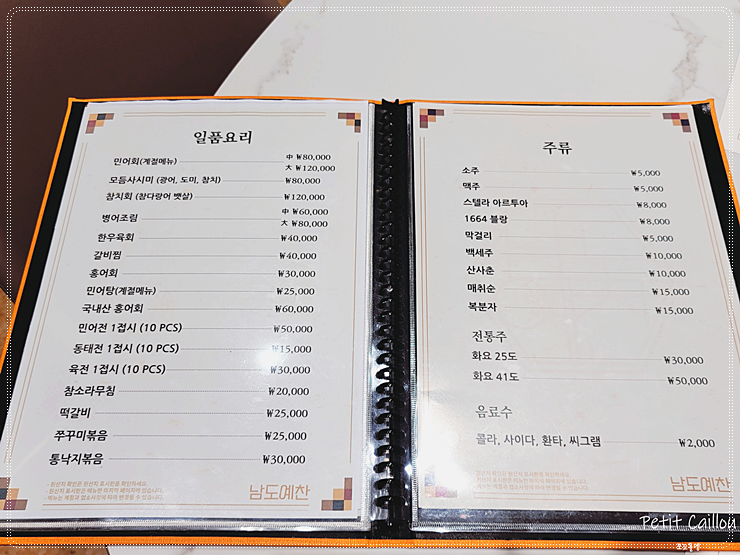 일품요리
민어회(계절메뉴) 中 ₩80,000
大 ₩120,000
모듬사시미 (광어, 도미, 참치) ₩80,000
참치회 (참다랑어 뱃살) ₩120,000
병어조림 中 ₩60,000
大 ₩80,000
한우육회 ₩40,000
갈비찜 ₩40,000
홍어회 ₩30,000
민어탕(계절메뉴) ₩25,000
국내산 홍어회 ₩60,000
민어전 1접시 (10 PCS) ₩50,000
동태전 1접시 (10 PCS) ₩15,000
육전 1접시 (10 PCS) ₩30,000
참소라무침 ₩20,000
떡갈비 ₩25,000
쭈꾸미볶음 ₩25,000
통낙지볶음 ₩30,000
- 원산지 확인은 원산지 표시판을 확인하세요.
- 원산지 표시판은 메뉴판 마지막 페이지에 있습니다.
- 메뉴는 계절과 업소사정에 따라 변경될 수 있습니다.
남도예찬
주류
소주 ₩5,000
맥주 ₩5,000
스텔라 아르투아 ₩8,000
1664 블랑 ₩8,000
막걸리 ₩5,000
백세주 ₩10,000
산사춘 ₩10,000
매취순 ₩15,000
복분자 ₩15,000
전통주
화요 25도 ₩30,000
화요 41도 ₩50,000
음료수
콜라, 사이다, 환타, 씨그램 ₩2,000
남도예찬
Petit Caillou